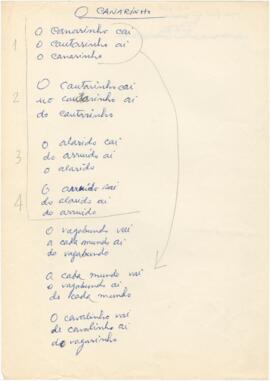 O CANARINHO
1
O canarinho cai
o cantarinho ai
o canarinho
2
O cantarinho cai
no cantarinho ai
do cantarinho
3
o alarido cai
do arruido ai
o alarido
4
O arruido cai
do alarido ai
do arruido
O vagabundo vai
a cada mundo ai
do vagabundo
a cada mundo vai
o vagabundo ai
de cada mundo
O cavalinho vai
de cavalinho ai
do vagarinho